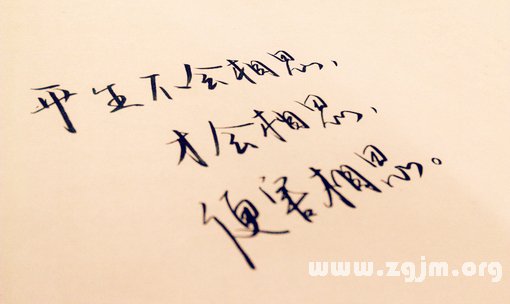 平生不会相思、
才会相思、
便害相思。
www.zgjm.org